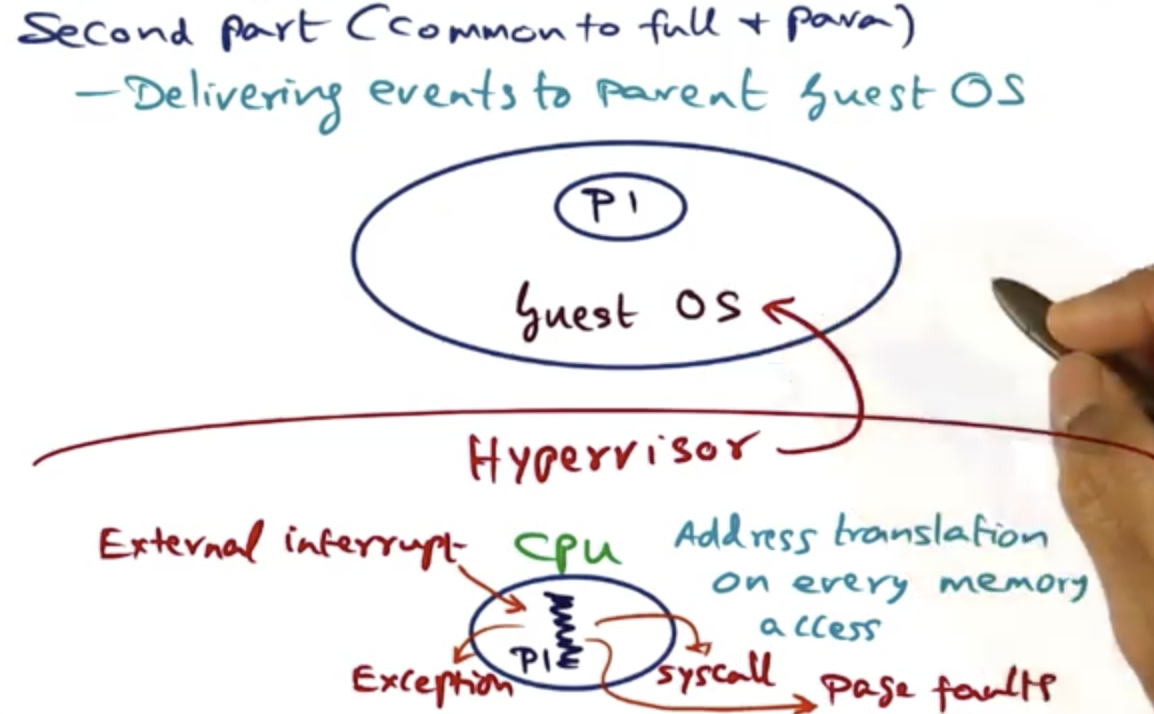 Second part (common to full + para)
- Delivering events to parent guest OS
P1
Guest OS
Hypervisor
External interrupt
CPU
Address translation
on every memory
access
P1
Exception
syscall
page faults